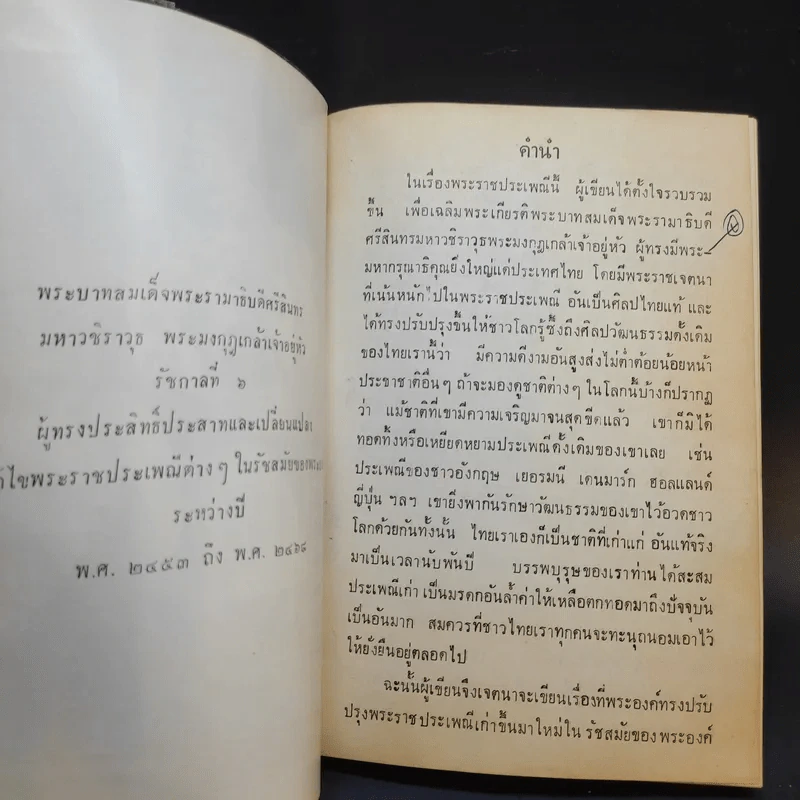 พระบาทสมเด็จพระรามาธิบดีศรีสินทร
มหาวชิราวุธ พระมงกุฎเกล้าเจ้าอยู่หัว
รัชกาลที่ ๖
ผู้ทรงประสิทธิ์ประสาทและเปลี่ยนแปลง
ไขพระราชประเพณีต่างๆ ในรัชสมัยของ
ระหว่างปี
พ.ศ. ๒๔๕๓ ถึง พ.ศ. ๒๔๖๘
คำนำ
ในเรื่องพระราชประเพณีนี้ ผู้เขียนได้ตั้งใจรวบรวม
ขึ้น เพื่อเฉลิมพระเกียรติพระบาทสมเด็จพระรามาธิบดี
ศรีสินทรมหาวชิราวุธพระมงกุฎเกล้าเจ้าอยู่หัว ผู้ทรงมีพระ-
มหากรุณาธิคุณยิ่งใหญ่แด่ประเทศไทย โดยมีพระราชเจตนา
ที่เน้นหนักไปในพระราชประเพณี อันเป็นศิลปไทยแท้ และ
ได้ทรงปรับปรุงขึ้นให้ชาวโลกรู้ซึ้งถึงศิลปวัฒนธรรมดั้งเดิม
ของไทยเรานี้ว่า มีความดีงามอันสูงส่งไม่ต่ำต้อยน้อยหน้า
ประชาชาติอื่นๆ ถ้าจะมองดูชาติต่างๆ ในโลกนี้บ้างก็ปรากฏ
ว่า แม้ชาติที่เขามีความเจริญมาจนสุดขีดแล้ว เขาก็มิได้
ทอดทิ้งหรือเหยียดหยามประเพณีดั้งเดิมของเขาเลย เช่น
ประเพณีของชาวอังกฤษ เยอรมนี เดนมาร์ก ฮอลแลนด์
ญี่ปุ่น ฯลฯ เขายิ่งพากันรักษาวัฒนธรรมของเขาไว้อวดชาว
โลกด้วยกันทั้งนั้น ไทยเราเองก็เป็นชาติที่เก่าแก่ อันแท้จริง
มาเป็นเวลานับพันปี บรรพบุรุษของเราท่านได้สะสม
ประเพณีเก่า เป็นมรดกอันล้ำค่าให้เหลือตกทอดมาถึงปัจจุบัน
เป็นอันมาก สมควรที่ชาวไทยเราทุกคนจะทะนุถนอมเอาไว้
ให้ยั่งยืนอยู่ตลอดไป
ฉะนั้นผู้เขียนจึงเจตนาจะเขียนเรื่องที่พระองค์ทรงปรับ
ปรุงพระราชประเพณีเก่าขึ้นมาใหม่ใน รัชสมัยของพระองค์